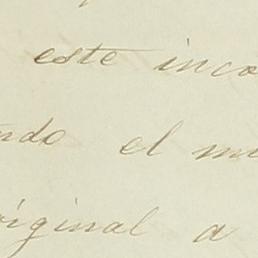 este inco
ndo el mi
original a